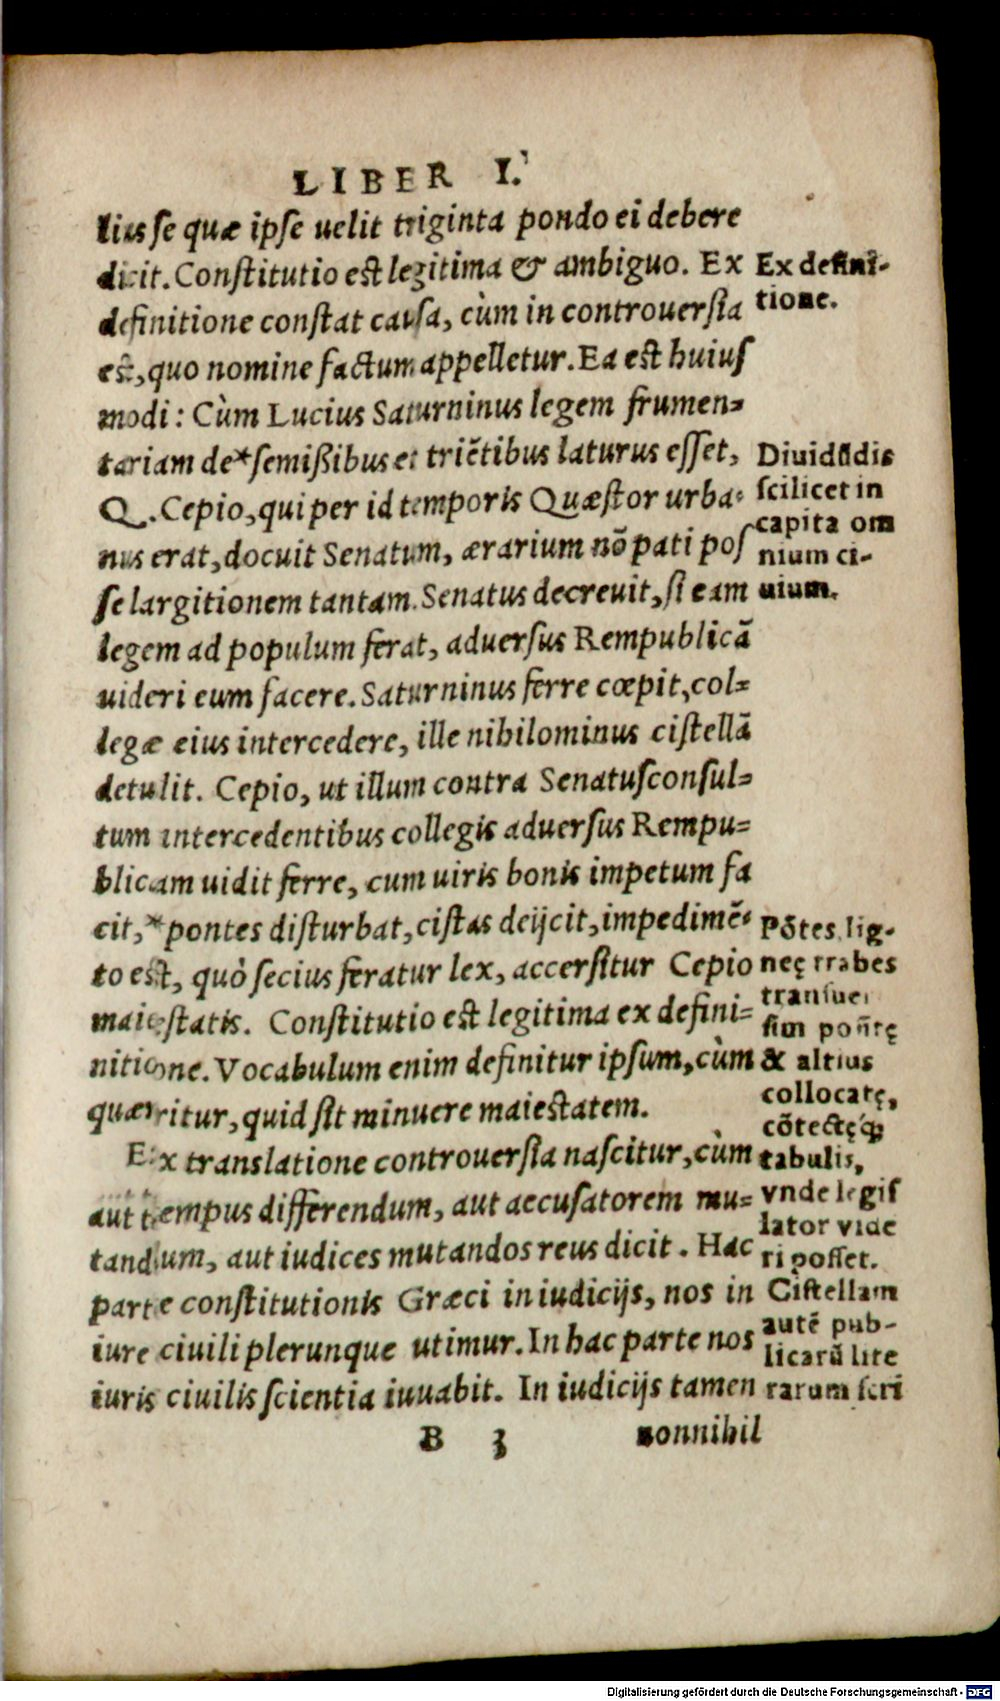 LIBER I.
lius se quæ ipse uelit triginta pondo ei debere
dicit. Constitutio est legitima & ambiguo. Ex
definitione constat causa, cùm in controuersia
est, quo nomine factum appelletur. Ea est huius
modi: Cùm Lucius Saturninus legem frumen-
tariam de *semißibus et triẽtibus laturus esset,
Q. Cepio, qui per id temporis Quæstor urba-
nus erat, docuit Senatum, ærarium nõ pati pos
se largitionem tantam. Senatus decreuit, si eam
legem ad populum ferat, aduersus Rempublicã
uideri eum facere. Saturninus ferre cœpit, col-
legæ eius intercedere, ille nihilominus cistellã
detulit. Cepio, ut illum contra Senatusconsul-
tum intercedentibus collegis aduersus Rempu-
blicam uidit ferre, cum uiris bonis impetum fa
cit, *pontes disturbat, cistas deijcit, impedimẽ-
to est, quò secius feratur lex, accersitur Cepio
maiestatis. Constitutio est legitima ex defini-
nitione. Vocabulum enim definitur ipsum, cùm
quæritur, quid sit minuere maiestatem.
Ex translatione controuersia nascitur, cùm
aut tempus differendum, aut accusatorem mu-
tandum, aut iudices mutandos reus dicit. Hac
parte constitutionis Græci in iudicijs, nos in
iure ciuili plerunque utimur. In hac parte nos
iuris ciuilis scientia iuuabit. In iudicijs tamen
B 3 nonnihil
Ex defini-
tione.
Diuidũdis
scilicet in
capita om
nium ci-
uium.
Põtes lig-
neę trabes
transuer
sim pontę
& altius
collocatę,
cõtectęq́;
tabulis,
vnde legis
lator vide
ri posset.
Cistellam
autẽ pub-
licarũ lite
rarum scri
Digitalisierung gefördert durch die Deutsche Forschungsgemeinschaft - DFG